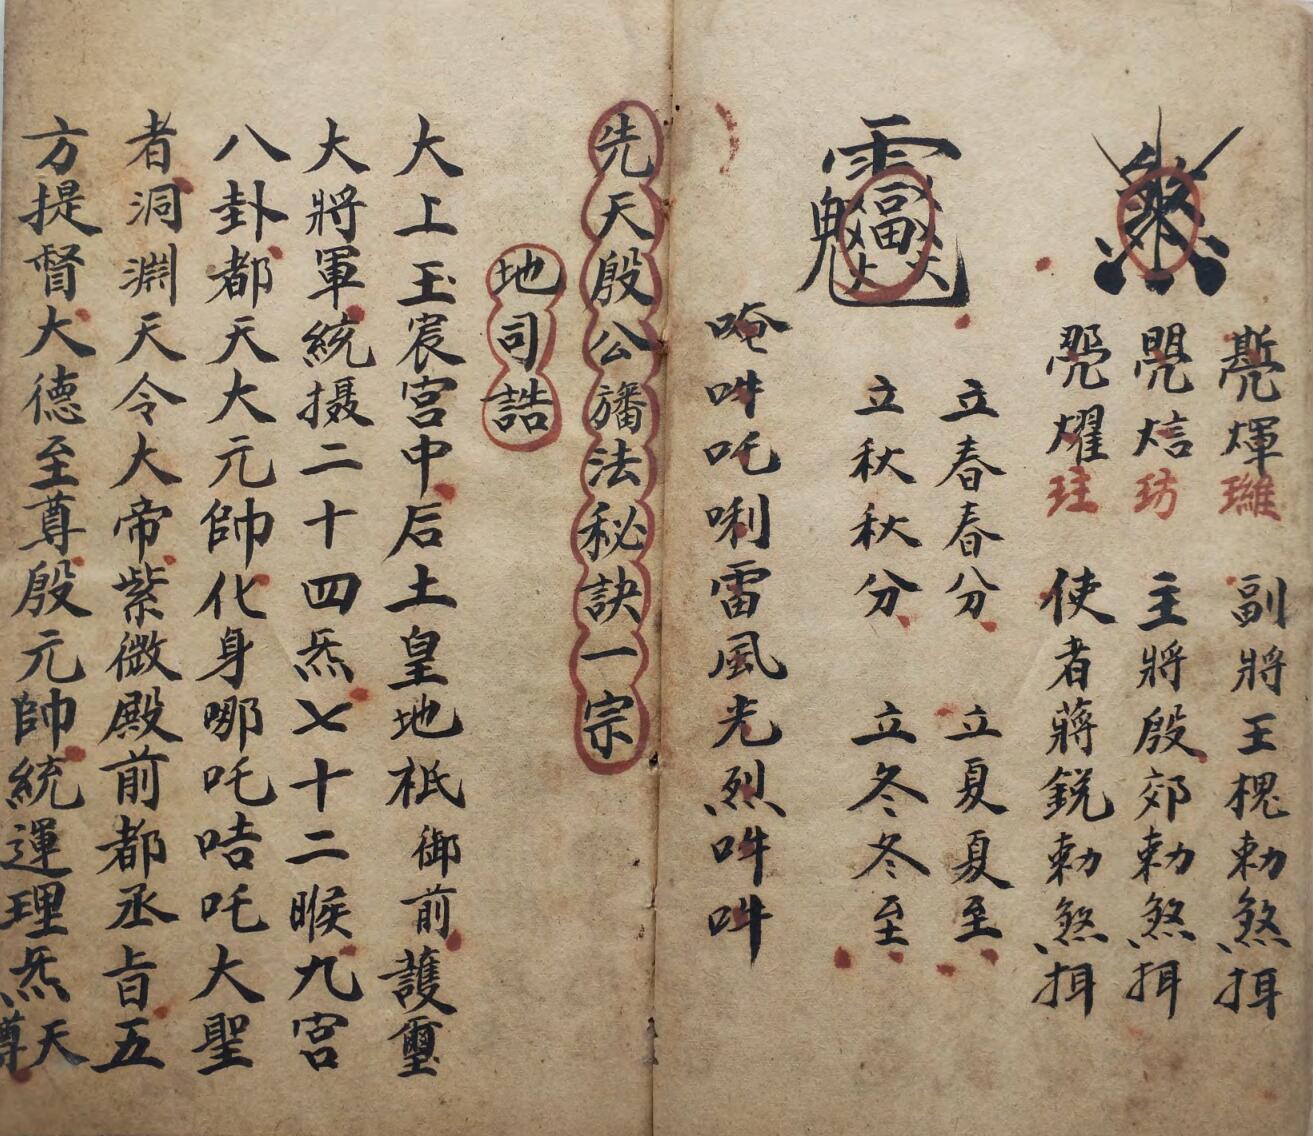 煇 副將王槐勅煞挕
焅 主將殷郊勅煞挕
燿 使者蔣銳勅煞挕
立春春分 立夏夏至
立秋秋分 立冬冬至
唵吽吒唎雷風光烈吽吽
先天殷公旛法秘訣一宗
地司誥
大上玉宸宮中后土皇地祇御前護璽
大將軍統摄二十四炁七十二睺九宮
八卦都天大元帥化身哪吒咭吒大聖
者洞淵天令大帝紫微殿前都丞旨五
方提督大德至尊殷元帥統運理炁天尊